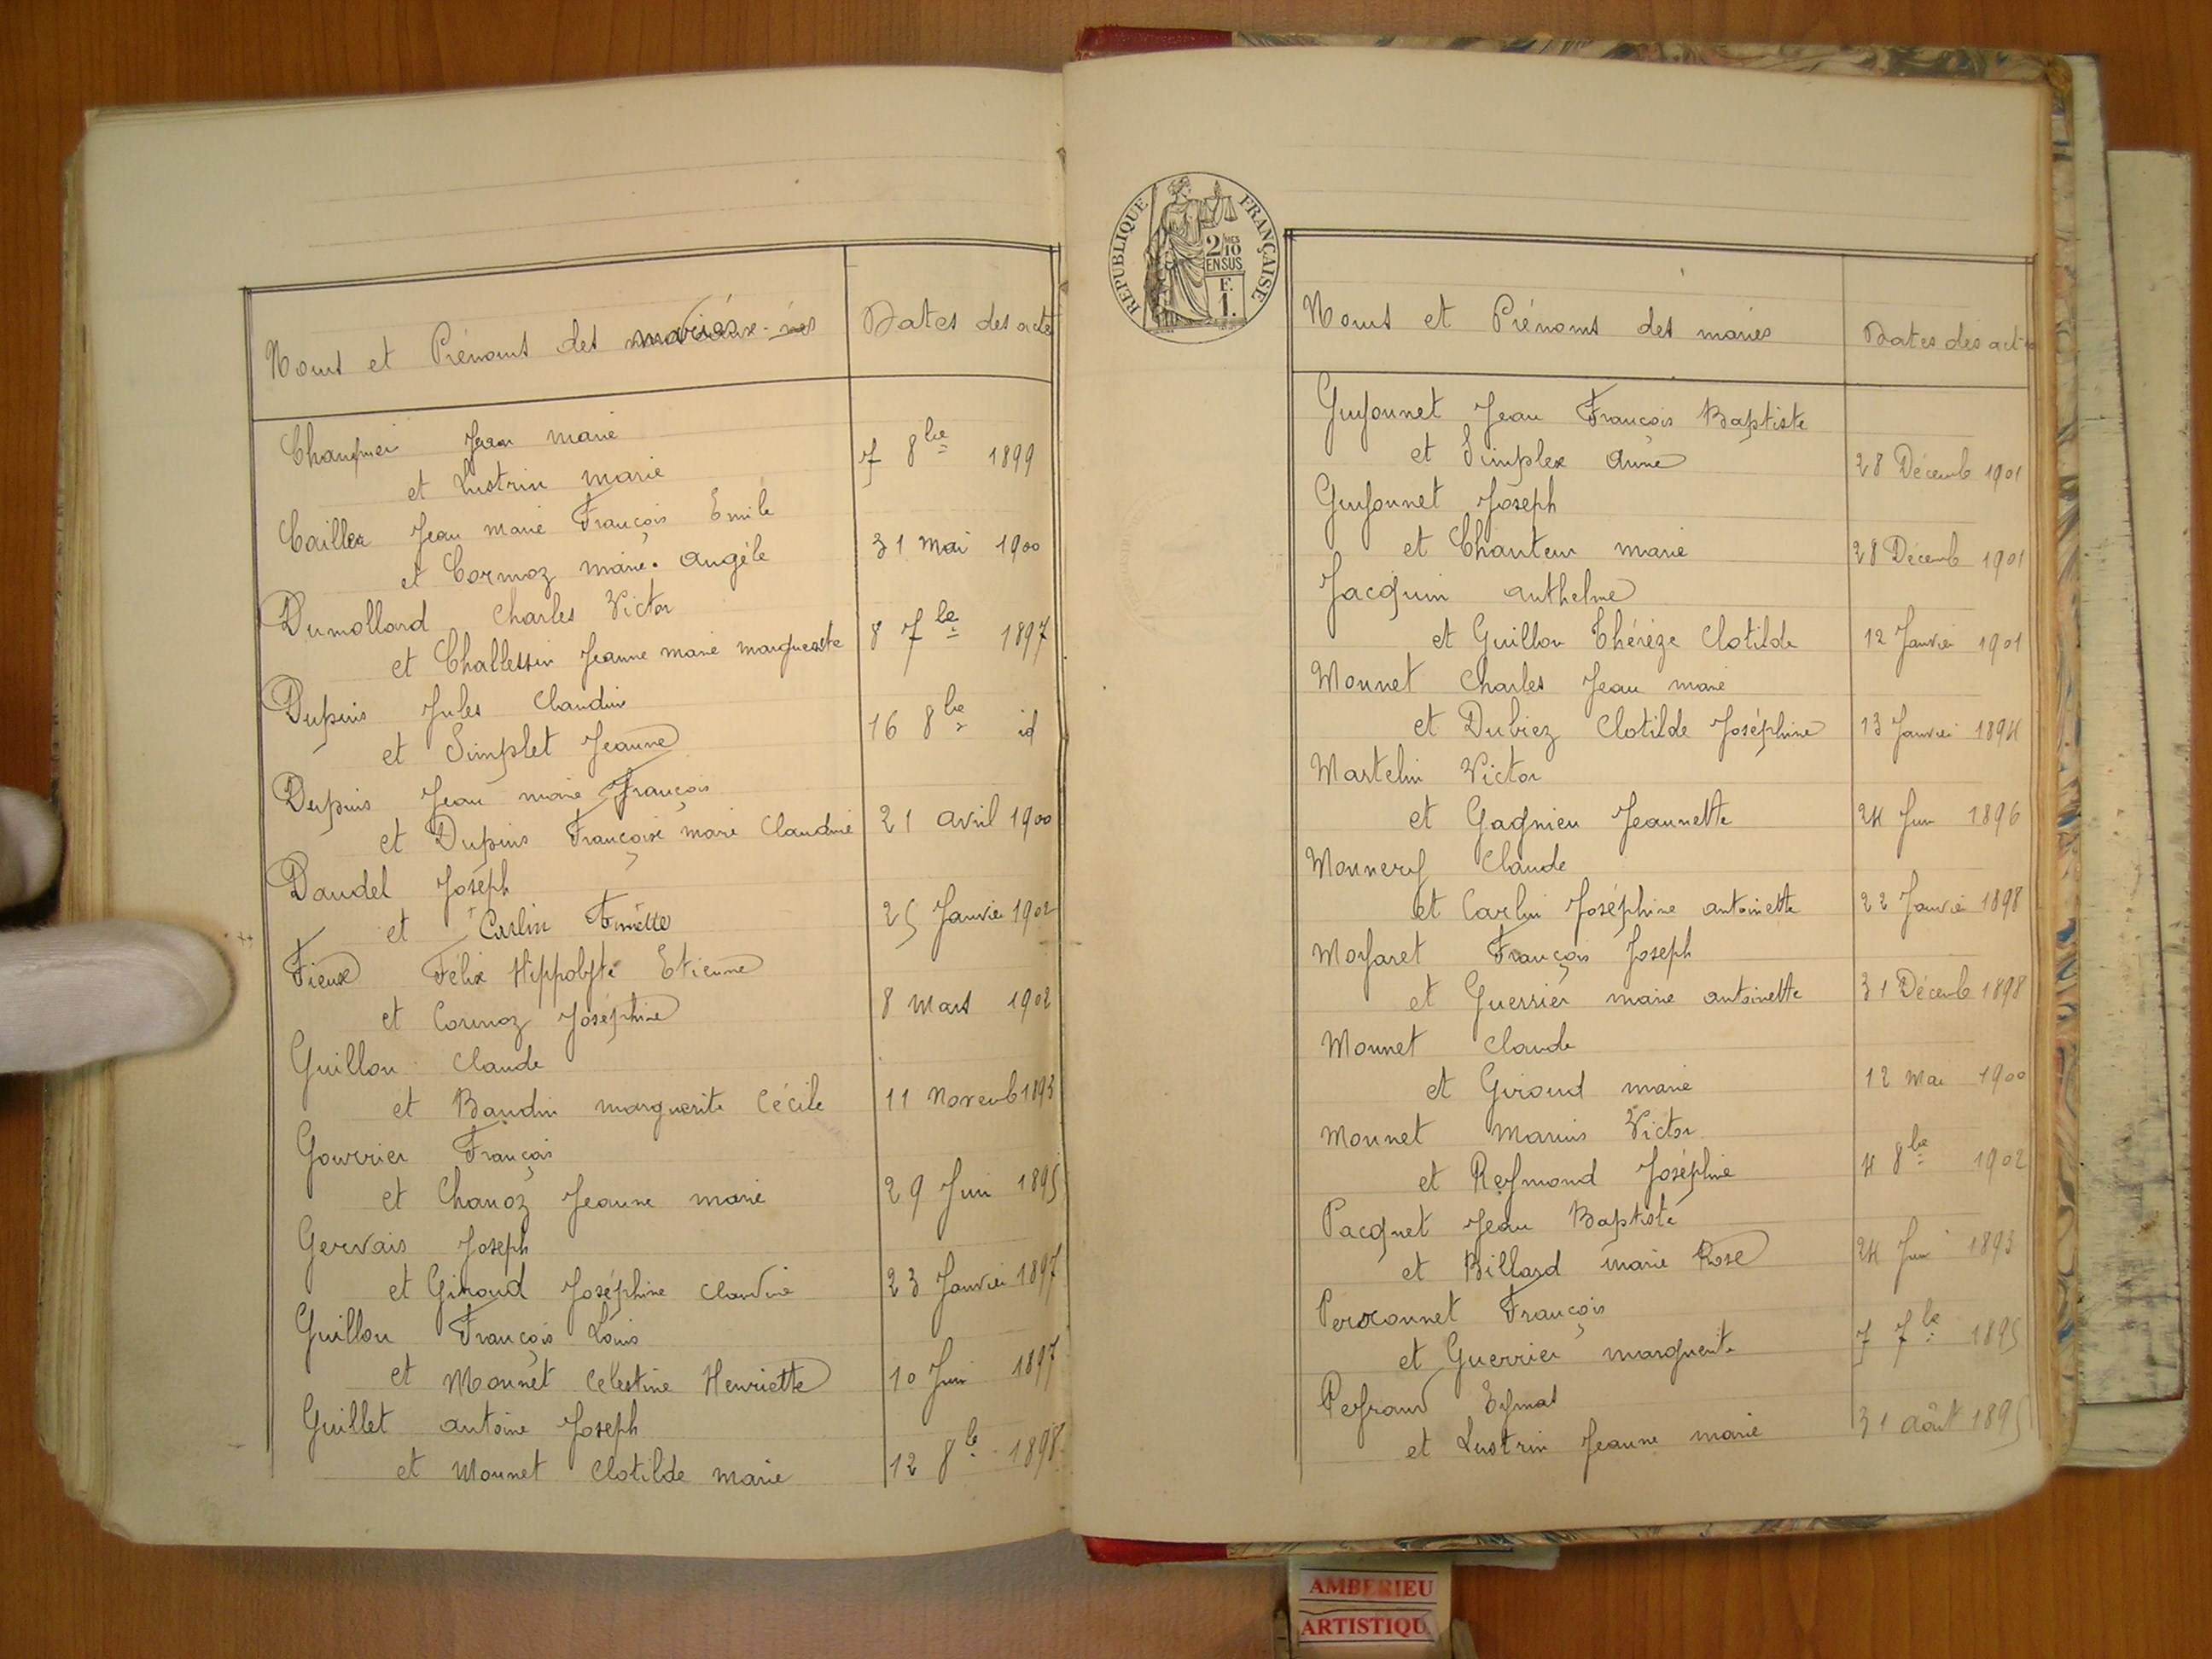 Noms et Prénoms des mariés
Dates des actes
Changner Jean Marie
et Lustrin Marie
7 8bre 1899
Cailler Jean Marie François Emile
et Cormoz Marie Angèle
31 Mai 1900
Dumollard Charles Victor
et Challessin Jeanne Marie Marguerite
8 7bre 1897
Dupuis Jules Claudin
et Simplet Jeanne
16 8bre id
Dupuis Jean Marie François
et Dupuis Françoise Marie Claudine
21 Avril 1900
Daudel Joseph
et Carlin
25 Janvier 1902
Fieux Félix Hippolyte Etienne
et Cormoz Joséphine
8 Mars 1902
Guillon Claude
et Baudin Marguerite Cécile
11 Novemb 1893
Gourrier François
et Chanoz Jeanne Marie
29 Juin 1895
Gervais Joseph
et Giroud Joséphine Claudine
23 Janvier 1897
Guillon François Louis
et Monnet Célestine Henriette
10 Juin 1897
Guillet Antoine Joseph
et Monnet Clotilde Marie
12 8bre 1898
REPUBLIQUE FRANÇAISE
2/10MES
EN SUS
F.
1.
Noms et Prénoms des mariés
Dates des actes
Guyonnet Jean François Baptiste
et Simplex Anne
28 Décemb 1901
Guyonnet Joseph
et Chanteur Marie
28 Décemb 1901
Jacquin Anthelme
et Guillon Thérèze Clotilde
12 Janvier 1901
Monnet Charles Jean Marie
et Dubiez Clotilde Joséphine
13 Janvier 1894
Martelin Victor
et Gagnieu Jeannette
24 Juin 1896
Monnery Claude
et Carlin Joséphine Antoinette
22 Janvier 1898
Moyaret François Joseph
et Guerrier Marie Antoinette
31 Décemb 1898
Monnet Claude
et Giroud Marie
12 Mai 1900
Monnet Marius Victor
et Reymond Joséphine
4 8bre 1902
Pacquet Jean Baptiste
et Billard Marie Rose
24 Juin 1893
Perronnet François
et Guerrier Marguerite
7 7bre 1895
Peyraud Eymat
et Lustrin Jeanne Marie
31 Août 1895
AMBERIEU
ARTISTIQU